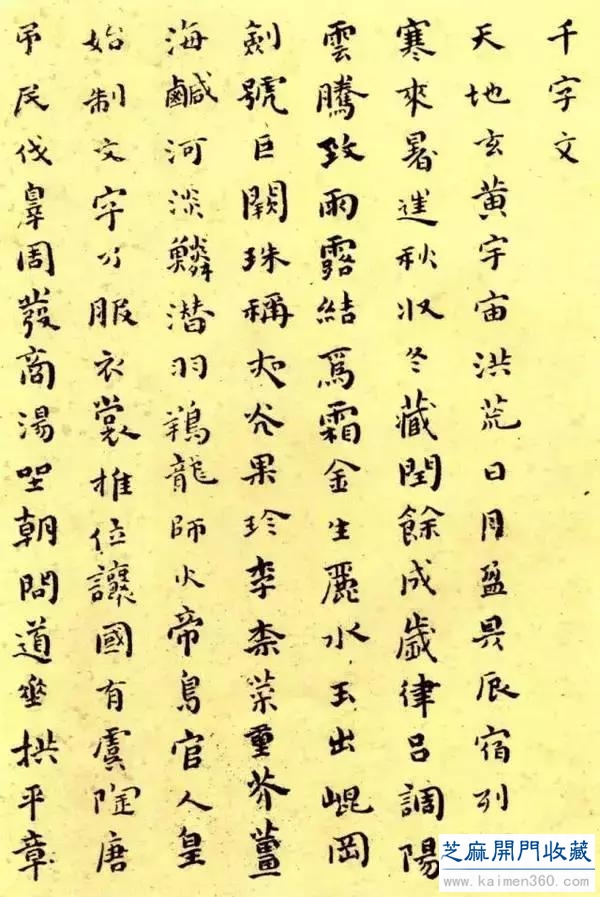 千字文
天地玄黃宇宙洪荒日月盈昃辰宿列
寒來暑往秋收冬藏閏餘成歲律呂調陽
雲騰致雨露結爲霜金生麗水玉出崐岡
劍號巨闕珠稱夜光果珍李柰菜重芥薑
海鹹河淡鱗潛羽翔龍師火帝鳥官人皇
始制文字乃服衣裳推位讓國有虞陶唐
弔民伐罪周發商湯坐朝問道垂拱平章
芝麻開門收藏
www.kaimen360.com